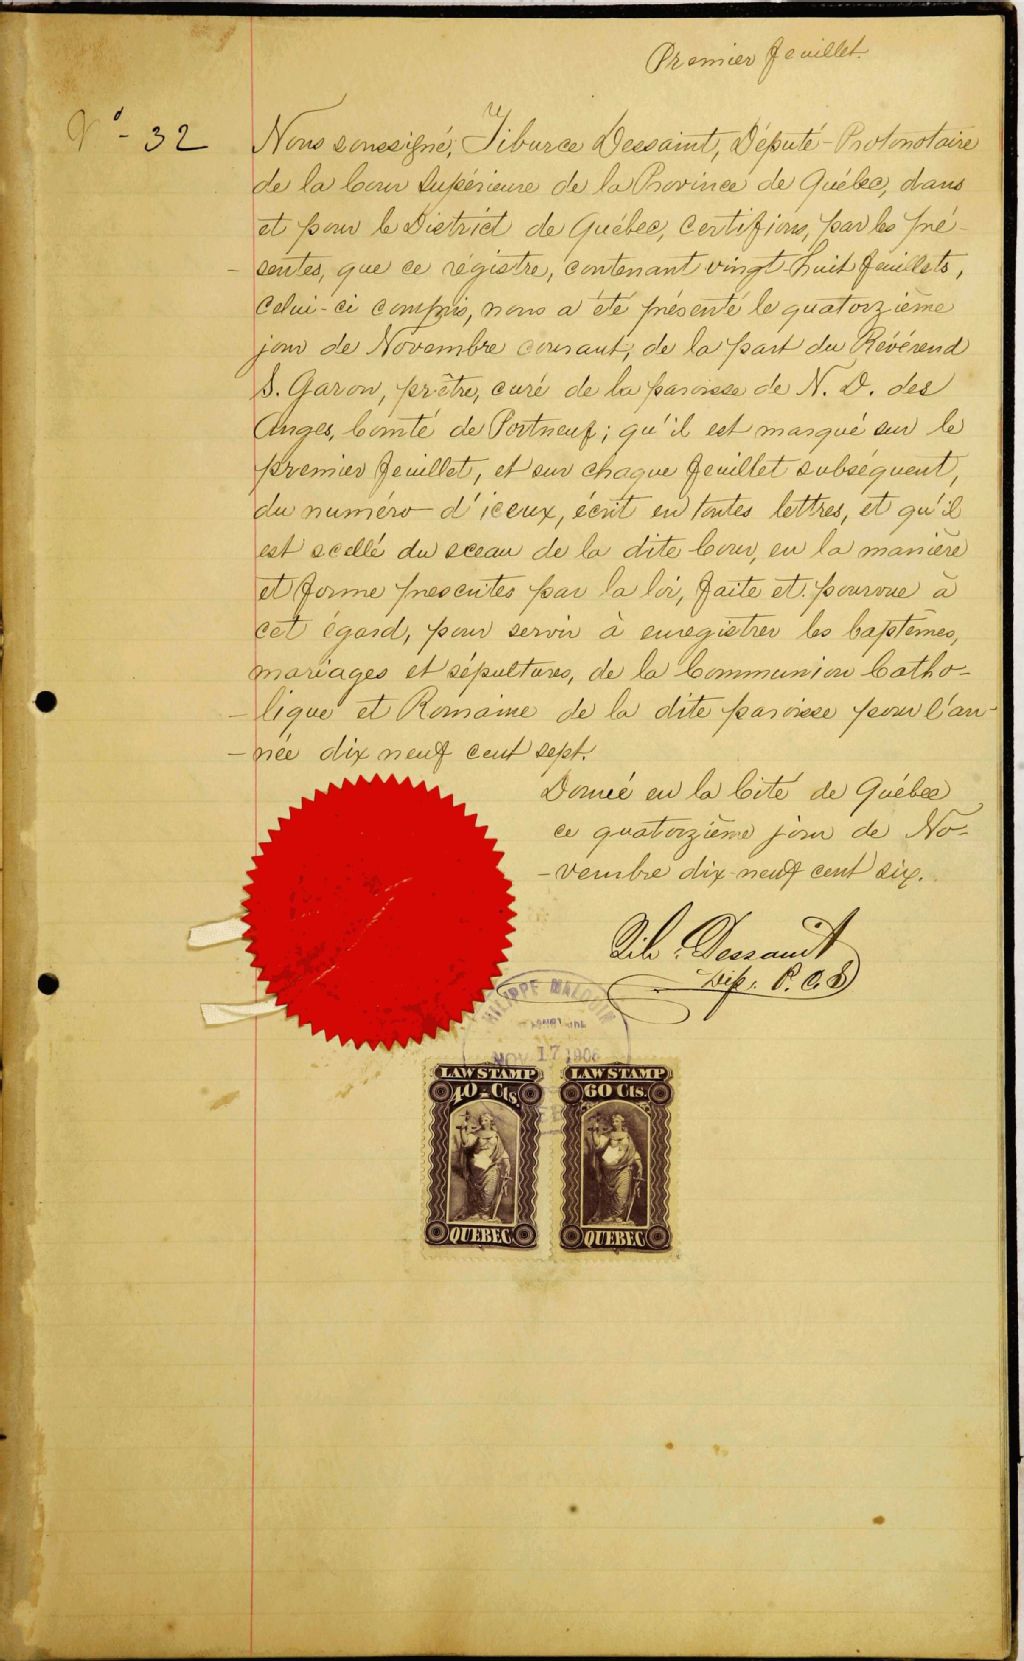 Premier feuillet.
No - 32
Nous soussigné, Tiburce Dessaint, Député-Protonotaire
de la Cour Supérieure de la Province de Québec, dans
et pour le District de Québec, certifions, par les pré-
- sentes, que ce régistre, contenant vingt-huit feuillets,
celui-ci compris, nous a été présenté le quatorzième
jour de Novembre courant, de la part du Révérend
S. Garon, prêtre, curé de la paroisse de N. D. des
Anges, Comté de Portneuf; qu'il est marqué sur le
premier feuillet, et sur chaque feuillet subséquent,
du numéro d'iceux, écrit en toutes lettres, et qu'il
est scellé du sceau de la dite Cour, en la manière
et forme prescrites par la loi, faite et pourvue à
cet égard, pour servir à enregistrer les baptêmes,
mariages et sépultures, de la Communion Catho-
- lique et Romaine de la dite paroisse pour l'an-
- née dix neuf cent sept.
Donné en la Cité de Québec
ce quatorzième jour de No-
- vembre dix neuf cent six.
Tib. Dessaint
Dép. P. C. S
PHILIPPE MALOUIN
NOV 17 1906
LAW STAMP LAW STAMP
40 Cts. 60 Cts.
QUEBEC QUEBEC